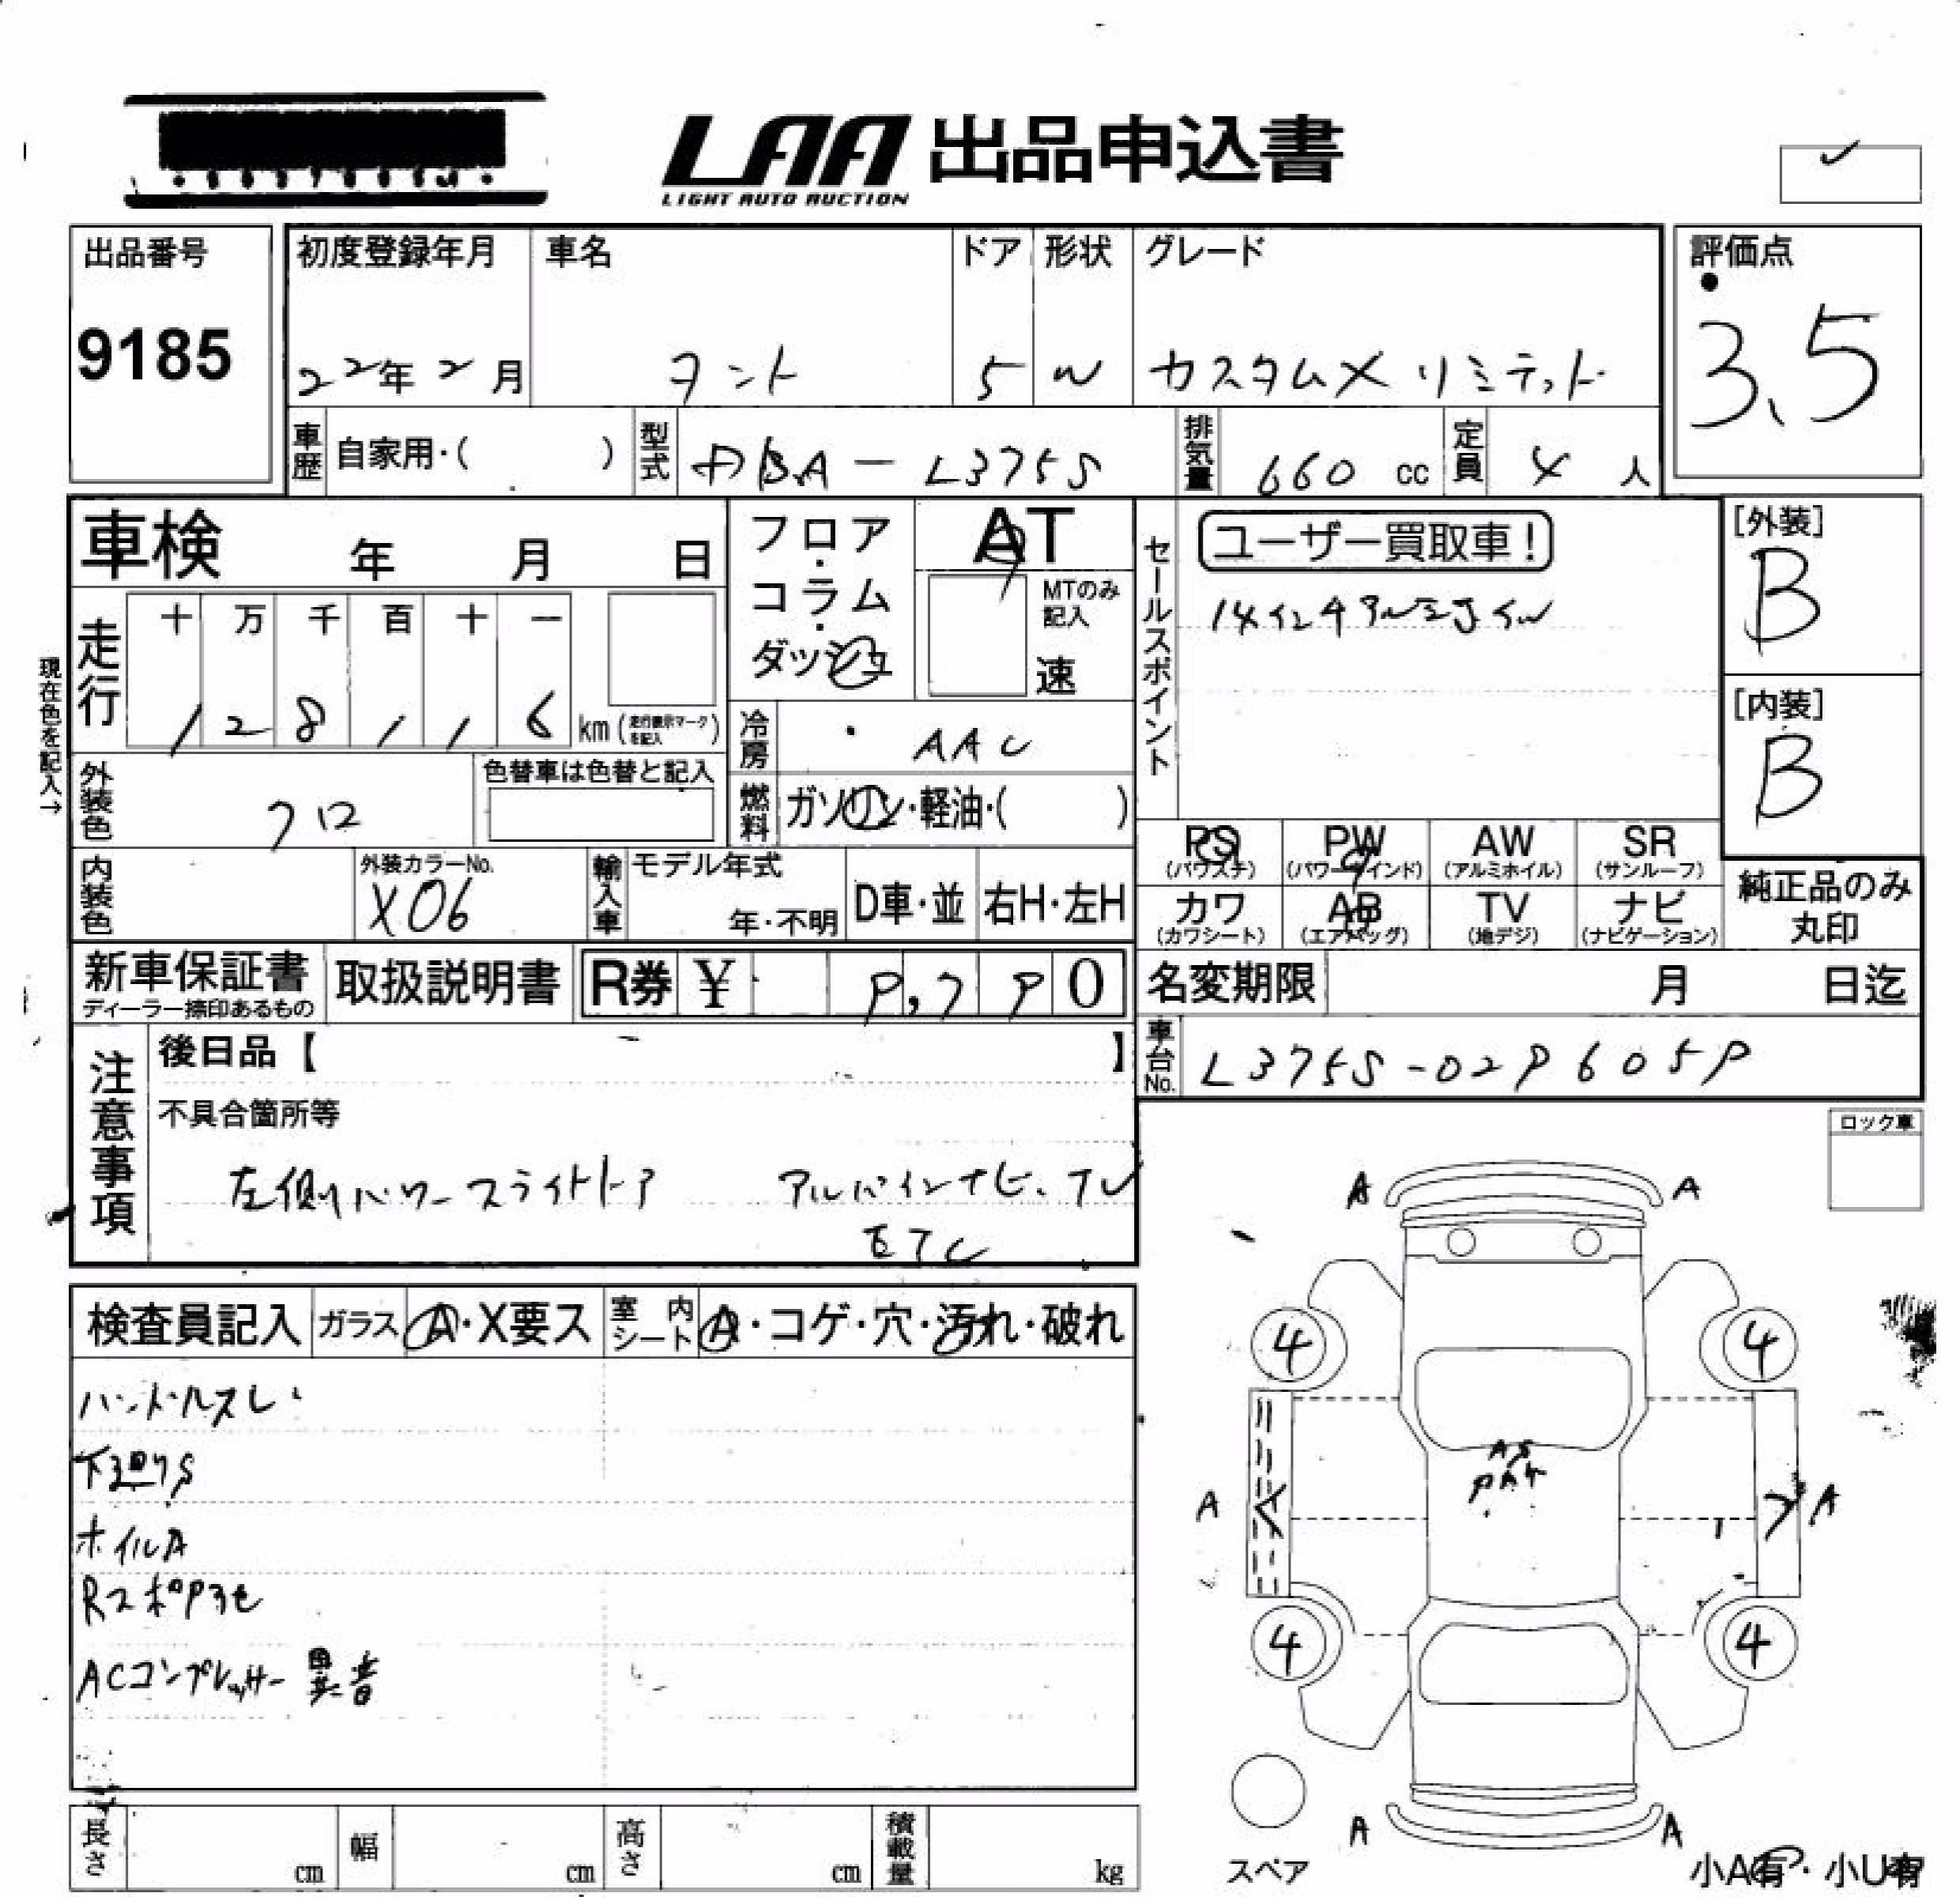 LAA 出品申込書
LIGHT AUTO AUCTION
出品番号
9185
初度登録年月
22年2月
車名
タント
ドア
5
形状
W
グレード
カスタムX リミテッド
評価点
3.5
車歴 自家用・( )
型式 DBA-L375S
排気量 660 cc
定員 4 人
車検 年 月 日
フロア・コラム・ダッシュ
AT
MTのみ記入
速
セールスポイント
ユーザー買取車!
14インチアルミホイル
[外装]
B
[内装]
B
現在色を記入→
走行 十 万 千 百 十 一
1 2 8 1 1 6 km (走行表示マークを記入)
冷房 AAC
外装色 クロ
色替車は色替と記入
燃料 ガソリン・軽油・( )
PS (パワステ)
PW (パワーウインド)
AW (アルミホイル)
SR (サンルーフ)
カワ (カワシート)
AB (エアバッグ)
TV (地デジ)
ナビ (ナビゲーション)
純正品のみ丸印
内装色
外装カラーNo.
X06
輸入車
モデル年式
年・不明
D車・並
右H・左H
新車保証書
ディーラー捺印あるもの
取扱説明書
R券 ¥ 9,790
名変期限 月 日迄
車台No. L375S-0296059
注意事項
後日品【 】
不具合箇所等
左側パワースライドドア アルパインナビ、TV
ETC
ロック車
検査員記入
ガラス A・X要ス
室内シート A・コゲ・穴・汚れ・破れ
ハンドルスレ
下廻りS
ホイルA
ACコンプレッサー 異音
A A
4 4
A A
4 4
A A
スペア
小A有・小U有
長さ cm
幅 cm
高さ cm
積載量 kg